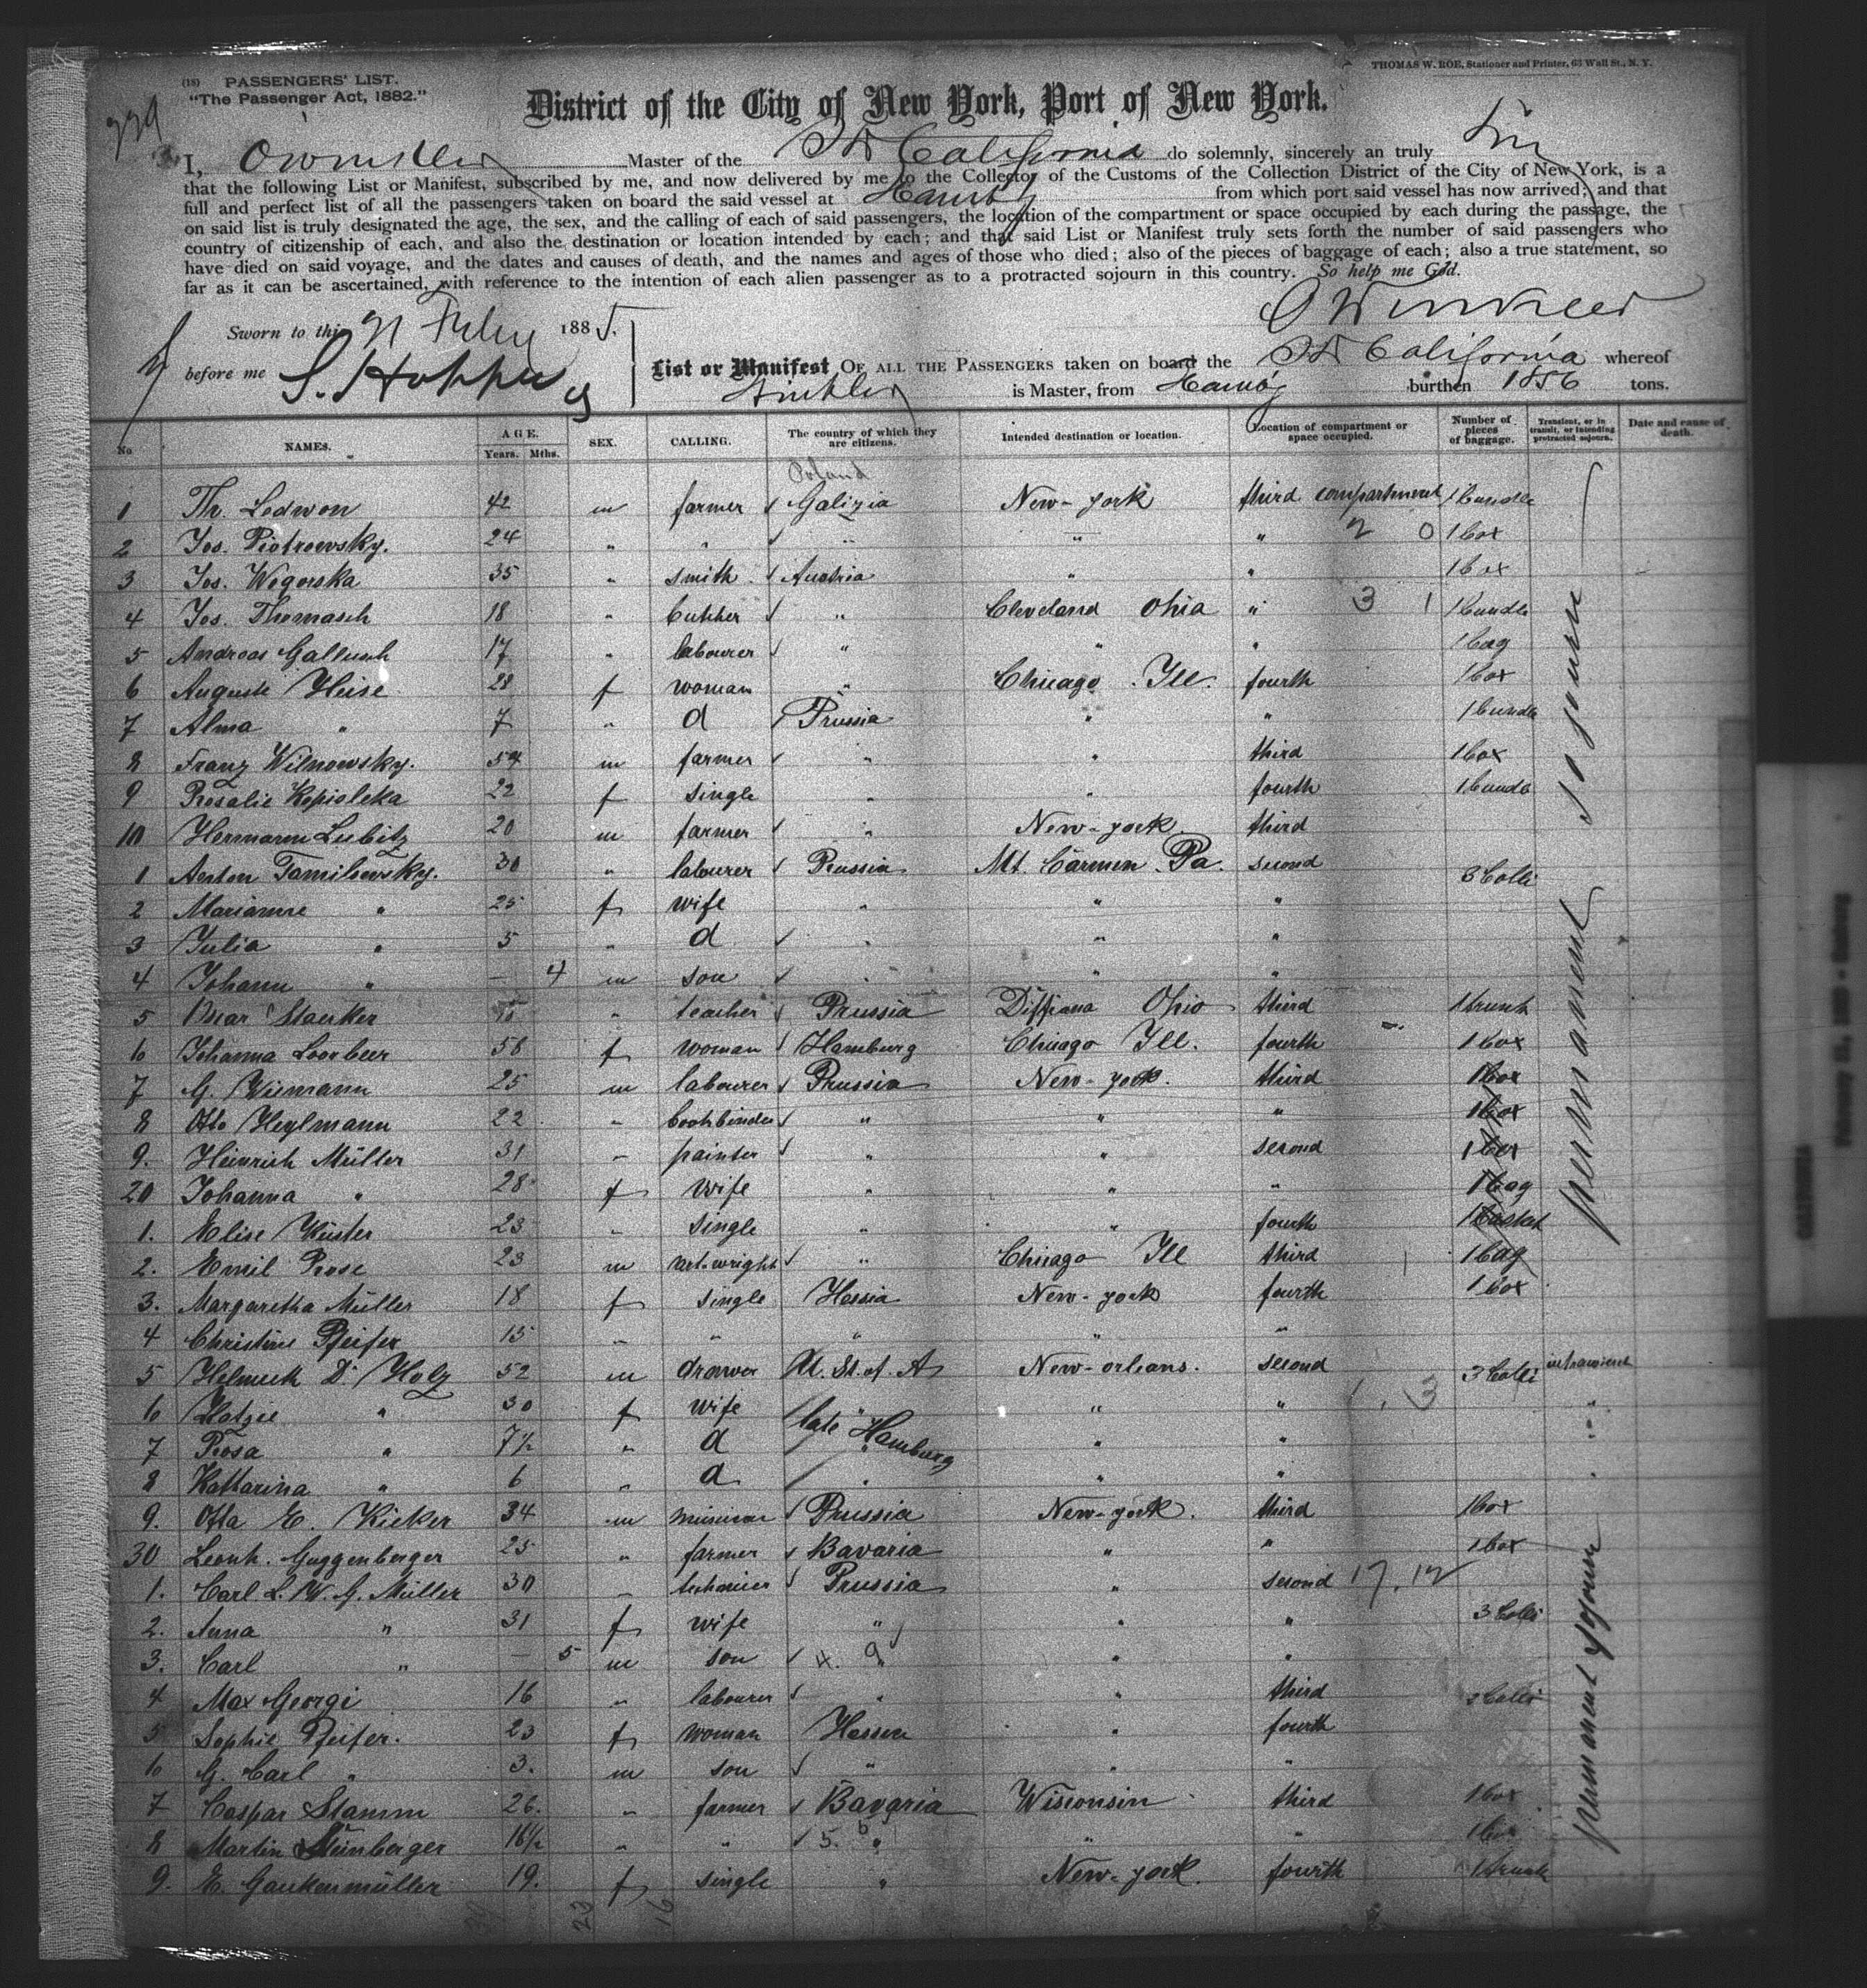 (18) PASSENGERS' LIST.
"The Passenger Act, 1882."
THOMAS W. ROE, Stationer and Printer, 63 Wall St., N. Y.
District of the City of New York, Port of New York.
I, Master of the California do solemnly, sincerely an truly
that the following List or Manifest, subscribed by me, and now delivered by me to the Collector of the Customs of the Collection District of the City of New York, is a
full and perfect list of all the passengers taken on board the said vessel at Hambg from which port said vessel has now arrived; and that
on said list is truly designated the age, the sex, and the calling of each of said passengers, the location of the compartment or space occupied by each during the passage, the
country of citizenship of each, and also the destination or location intended by each; and that said List or Manifest truly sets forth the number of said passengers who
have died on said voyage, and the dates and causes of death, and the names and ages of those who died; also of the pieces of baggage of each; also a true statement, so
far as it can be ascertained, with reference to the intention of each alien passenger as to a protracted sojourn in this country. So help me God.
Winkler
Sworn to this 21 1885.
before me
List or Manifest OF ALL THE PASSENGERS taken on board the California whereof
Winkler is Master, from Hambg burthen 1856 tons.
No NAMES. AGE. Years. Mths. SEX. CALLING. The country of which they are citizens. Intended destination or location. Location of compartment or space occupied. Number of pieces of baggage. Transient, or in transit, or intending protracted sojourn. Date and cause of death.
Poland
1 Th. Ledwon 42 m farmer Galizia New-york third compartment 1 bundle
2 Jos. Piotrowsky. 24 " " " " " 2 0 1 box
3 Jos. Wegorska 35 " smith Austria " " 1 box
4 Jos. Thomasch 18 " butcher " Cleveland Ohia " 3 1 1 bundle
5 Andreas Gallusch 17 " labourer " " " 1 bag
6 Auguste Heise 28 f woman " Chicago Ill. fourth 1 box
7 Alma " 7 " d Prussia " " 1 bundle
8 Franz Wilnowsky. 54 m farmer " " third 1 box
9 Rosalie Kopioleka 22 f single " " fourth 1 bundle
10 Hermann Lubitz 20 m farmer " New-york third
1 Anton Tomilowsky. 30 " labourer Prussia Mt. Carmen Pa. second 3 Colli
2 Marianne " 25 f wife " " "
3 Julia " 5 " d " " "
4 Johann " — 4 m son " " "
5 Oscar Staerker " teacher Prussia Diffiana Ohio third 1 trunk
6 Johanna Loorbeer 56 f woman Hamburg Chicago Ill. fourth 1 box
7 G. Wiemann 25 m labourer Prussia New-york. third 1 box
8 Otto Heylmann 22 " bookbinder " " " 1 box
9. Heinrich Müller 31 " painter " " second 1 box
20 Johanna " 28 f wife " " " 1 bag
1. Elise Küster 23 " single " " fourth 1 basket
2. Emil Rose 23 m cartwright " Chicago Ill third 1 bag
3. Margaretha Müller 18 f single Hessia New-york fourth 1 box
4 Christine Pfeifer 15 " " " " "
5 Helmuth D. Holz 52 m drawer U. St. of A New-orleans. second 3 Colli
6 " 30 f wife " " " "
7 Rosa " 7½ " d late Hamburg " " "
8 Katharina " 6 " d " " " "
9. Otto E. Kieker 34 m musician Prussia New-york. third 1 box
30 Leonh. Guggenberger 25 " farmer Bavaria " " 1 box
1. Carl L. W. G. Müller 30 " Prussia " second 17. 12
2. Anna " 31 f wife " " " 3 Colli
3. Carl " — 5 m son 4. 9 " " "
4 Max Georgi 16 " labourer " " third 2 Colli
5 Sophie Pfeifer. 23 f woman Hessen " fourth
6 G. Carl " 3. m son " " "
7 Caspar Stamm 26. " farmer Bavaria Wisconsin third 1 box
8 Martin Steinberger 16½ " " 5. " " " 1 box
9. E. Gaukenmüller 19. f single " New-york. fourth 1 trunk
sojourn
permanent
permanent sojourn
23 16